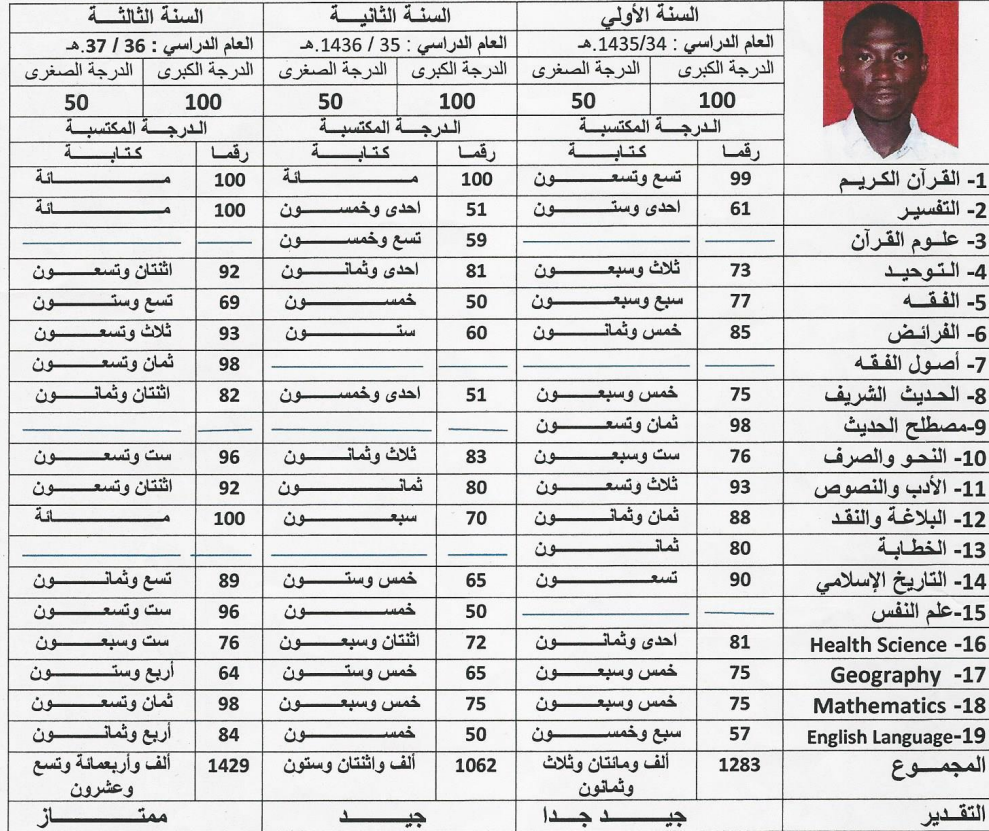 السنة الأولي السنة الثانيـــة السنة الثالثـــة
العام الدراسي : 1435/34.هـ العام الدراسي : 35 / 1436.هـ العام الدراسي : 36 / 37.هـ
الدرجة الكبرى الدرجة الصغرى الدرجة الكبرى الدرجة الصغرى الدرجة الكبرى الدرجة الصغرى
100 50 100 50 100 50
الدرجـــة المكتسبـة الدرجـــة المكتسبـة الدرجـــة المكتسبـة
رقمـا كـتـابـــــة رقمـا كـتـابـــــة رقمـا كـتـابـــــة
1- القـرآن الكـريـم 99 تسع وتسعـــــــون 100 مـــــــــائة 100 مـــــــــائة
2- التفسـير 61 احدى وستـــــــون 51 احدى وخمســـــــون 100 مـــــــــائة
3- علـوم القـرآن 59 تسع وخمســـــــون
4- الـتـوحيـد 73 ثلاث وسبعـــــــون 81 احدى وثمانـــــــون 92 اثنتان وتسعـــــــون
5- الفـقــه 77 سبع وسبعـــــــون 50 خمســـــــون 69 تسع وستـــــــون
6- الفرائـض 85 خمس وثمانـــــــون 60 ستـــــــون 93 ثلاث وتسعـــــــون
7- أصـول الفـقـه 98 ثمان وتسعـــــــون
8- الحـديث الشريف 75 خمس وسبعـــــــون 51 احدى وخمســـــــون 82 اثنتان وثمانـــــــون
9-مصطلح الحديث 98 ثمان وتسعـــــــون
10- النحـو والصرف 76 ست وسبعـــــــون 83 ثلاث وثمانـــــــون 96 ست وتسعـــــــون
11- الأدب والنصوص 93 ثلاث وتسعـــــــون 80 ثمانـــــــون 92 اثنتان وتسعـــــــون
12- البلاغـة والنقـد 88 ثمان وثمانـــــــون 70 سبعـــــــون 100 مـــــــــائة
13- الخطـابـة 80 ثمانـــــــون
14- التاريخ الإسلامي 90 تسعـــــــون 65 خمس وستـــــــون 89 تسع وثمانـــــــون
15-علم النفس 50 خمســـــــون 96 ست وتسعـــــــون
Health Science -16 81 احدى وثمانـــــــون 72 اثنتان وسبعـــــــون 76 ست وسبعـــــــون
Geography -17 75 خمس وسبعـــــــون 65 خمس وستـــــــون 64 أربع وستـــــــون
Mathematics -18 75 خمس وسبعـــــــون 75 خمس وسبعـــــــون 98 ثمان وتسعـــــــون
English Language-19 57 سبع وخمســـــــون 50 خمســـــــون 84 أربع وثمانـــــــون
المجمـــوع 1283 ألف ومائتان وثلاث وثمانون 1062 ألف واثنتان وستون 1429 ألف وأربعمائة وتسع وعشرون
التقـديـر جيــــد جــدا جيــــــد ممتـــــــــاز